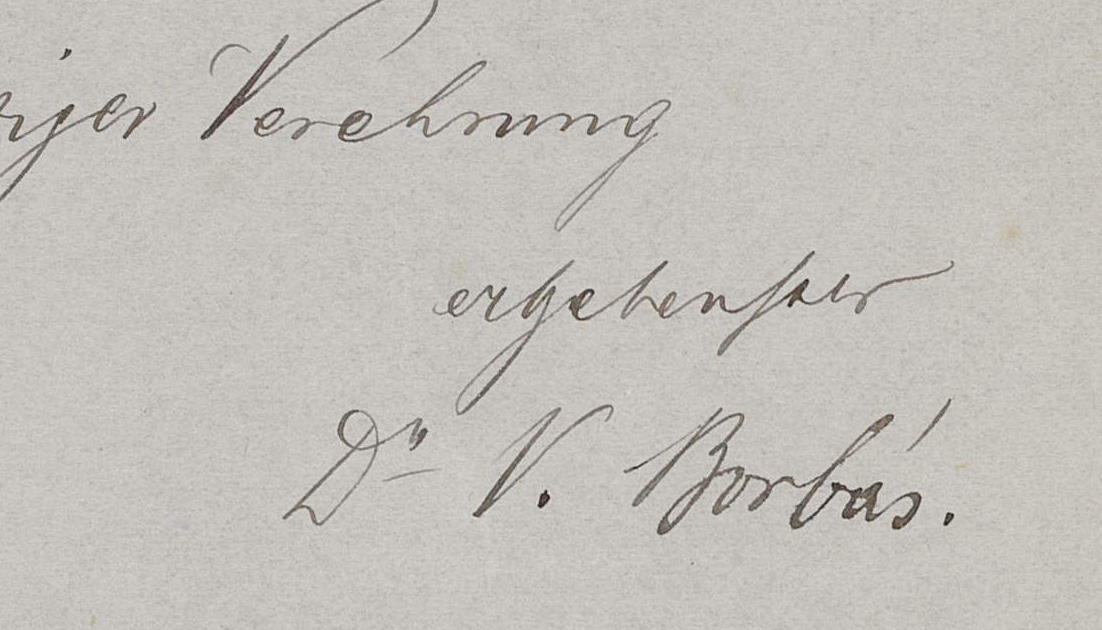 Verehrung
ergebenster
Dr V. Borbás.